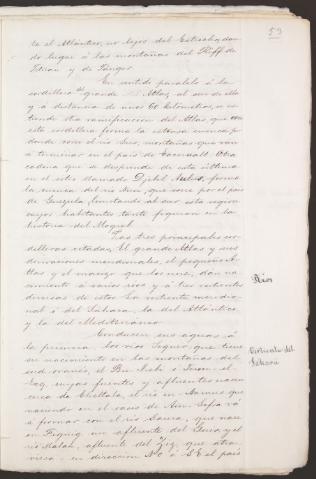 59
ta el Atlántico, no lejos del Estrecho, dan
do lugar á las montañas del Riff de
Tetuan y de Tanger.
En sentido paralelo á la
cordillera del grande Atlas, al sur de ella
y á distancia de unos 60 kilometros, se es
tiende otra ramificacion del Atlas, que con
esta cordillera forma la estensa cuenca por
donde corre el rio Sus, montañas que van
á terminar en el pais de Otra
cadena que se desprende de esta última
en el estes llamado Djebel forma
la cuenca del rio Nun, que corre por el pais
de Guezula, limitando al sur esta region
cuyos habitantes tanto figuran en la
historia del Mogreb.
Las tres principales cor
dilleras citadas, El grande Atlas y sus
derivaciones meridionales, el pequeño A-
tlas y el macizo que los une, dan na
cimiento á varios rios y á tres vertientes
diversas de estos. La vertiente meridio-
nal ó del Sahara, la del Atlántico
y la del Mediterráneo.
Rios
Conducen sus aguas á
la primera los rios que tiene
su nacimiento en las montañas del
sud oranés, el
cuyas fuentes y afluentes nacen
cerca de Chellala, el rio en-Namus que
naciendo en el oasis de Ain-Sefra vá
á formar con el rio Saura, que nace
en Figuig un afluente del Guir, y el
rio afluente del Ziz, que atra
viesa en direccion NO á SE el pais
Vertiente del
Sahara